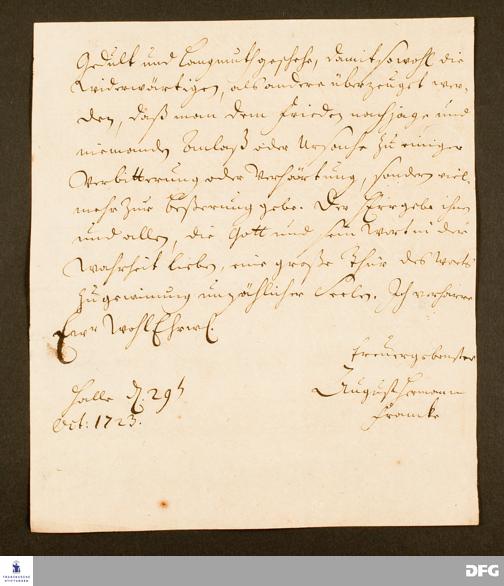 Gedult und Langmuth geschehe, damit sowohl die
Widerwärtigen, als andere überzeuget wer-
den, daß man dem Frieden nachjage und
niemanden Anlaß oder Ursache zu einiger
Verbitterung oder Verhärtung, sondern viel-
mehr zur Beßerung gebe. Der Herr gebe ihnen
und allen, die Gott und sein Wort in der
Wahrheit lieben, eine große Thür des Worts
zu gewinnung unzählicher Seelen. Ich verharre
Ewr WohlEhrw.
treuergebenster
Halle d. 29t
August Hermann
Oct: 1723.
Francke
FRANCKESCHE
STIFTUNGEN
DFG